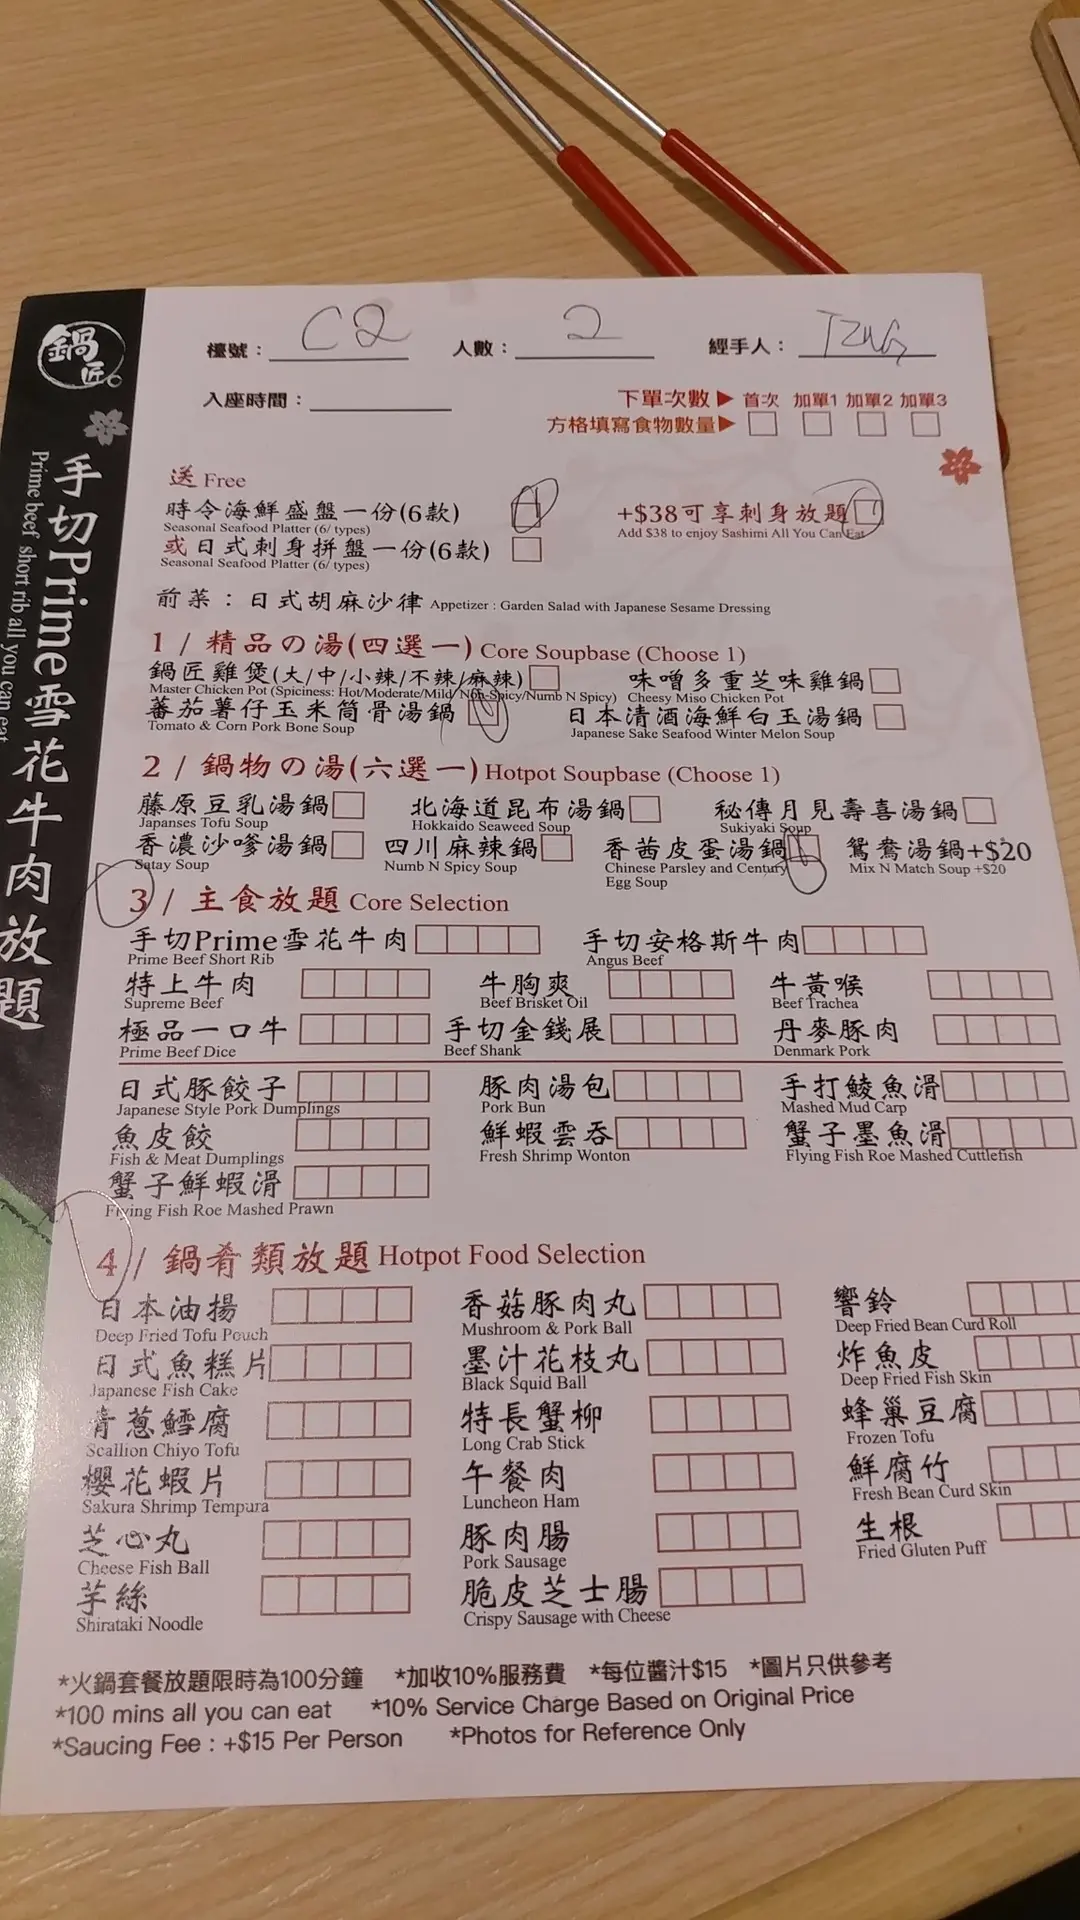 鍋匠
手切Prime雪花牛肉放題
Prime beef short rib all you can eat
檯號： C2 人數： 2 經手人： TZNG
入座時間： 下單次數▶ 首次 加單1 加單2 加單3
方格填寫食物數量▶
送 Free
時令海鮮盛盤一份(6款) +$38可享刺身放題
Seasonal Seafood Platter (6/ types) Add $38 to enjoy Sashimi All You Can Eat
或日式刺身拼盤一份(6款)
Seasonal Seafood Platter (6/ types)
前菜：日式胡麻沙律 Appetizer : Garden Salad with Japanese Sesame Dressing
1 / 精品の湯(四選一) Core Soupbase (Choose 1)
鍋匠雞煲(大/中/小辣/不辣/麻辣) 味噌多重芝味雞鍋
Master Chicken Pot (Spiciness: Hot/Moderate/Mild/ Non-Spicy/Numb N Spicy) Cheesy Miso Chicken Pot
蕃茄薯仔玉米筒骨湯鍋 日本清酒海鮮白玉湯鍋
Tomato & Corn Pork Bone Soup Japanese Sake Seafood Winter Melon Soup
2 / 鍋物の湯(六選一) Hotpot Soupbase (Choose 1)
藤原豆乳湯鍋 北海道昆布湯鍋 秘傳月見壽喜湯鍋
Japanses Tofu Soup Hokkaido Seaweed Soup Sukiyaki Soup
香濃沙嗲湯鍋 四川麻辣鍋 香茜皮蛋湯鍋 鴛鴦湯鍋+$20
Satay Soup Numb N Spicy Soup Chinese Parsley and Century Mix N Match Soup +$20
Egg Soup
3 / 主食放題 Core Selection
手切Prime雪花牛肉 手切安格斯牛肉
Prime Beef Short Rib Angus Beef
特上牛肉 牛胸爽 牛黃喉
Supreme Beef Beef Brisket Oil Beef Trachea
極品一口牛 手切金錢展 丹麥豚肉
Prime Beef Dice Beef Shank Denmark Pork
日式豚餃子 豚肉湯包 手打鯪魚滑
Japanese Style Pork Dumplings Pork Bun Mashed Mud Carp
魚皮餃 鮮蝦雲吞 蟹子墨魚滑
Fish & Meat Dumplings Fresh Shrimp Wonton Flying Fish Roe Mashed Cuttlefish
蟹子鮮蝦滑
Flying Fish Roe Mashed Prawn
4 / 鍋肴類放題 Hotpot Food Selection
日本油揚 香菇豚肉丸 響鈴
Deep Fried Tofu Pouch Mushroom & Pork Ball Deep Fried Bean Curd Roll
日式魚糕片 墨汁花枝丸 炸魚皮
Japanese Fish Cake Black Squid Ball Deep Fried Fish Skin
青蔥鱈腐 特長蟹柳 蜂巢豆腐
Scallion Chiyo Tofu Long Crab Stick Frozen Tofu
櫻花蝦片 午餐肉 鮮腐竹
Sakura Shrimp Tempura Luncheon Ham Fresh Bean Curd Skin
芝心丸 豚肉腸 生根
Cheese Fish Ball Pork Sausage Fried Gluten Puff
芋絲 脆皮芝士腸
Shirataki Noodle Crispy Sausage with Cheese
*火鍋套餐放題限時為100分鐘 *加收10%服務費 *每位醬汁$15 *圖片只供參考
*100 mins all you can eat *10% Service Charge Based on Original Price
*Saucing Fee : +$15 Per Person *Photos for Reference Only